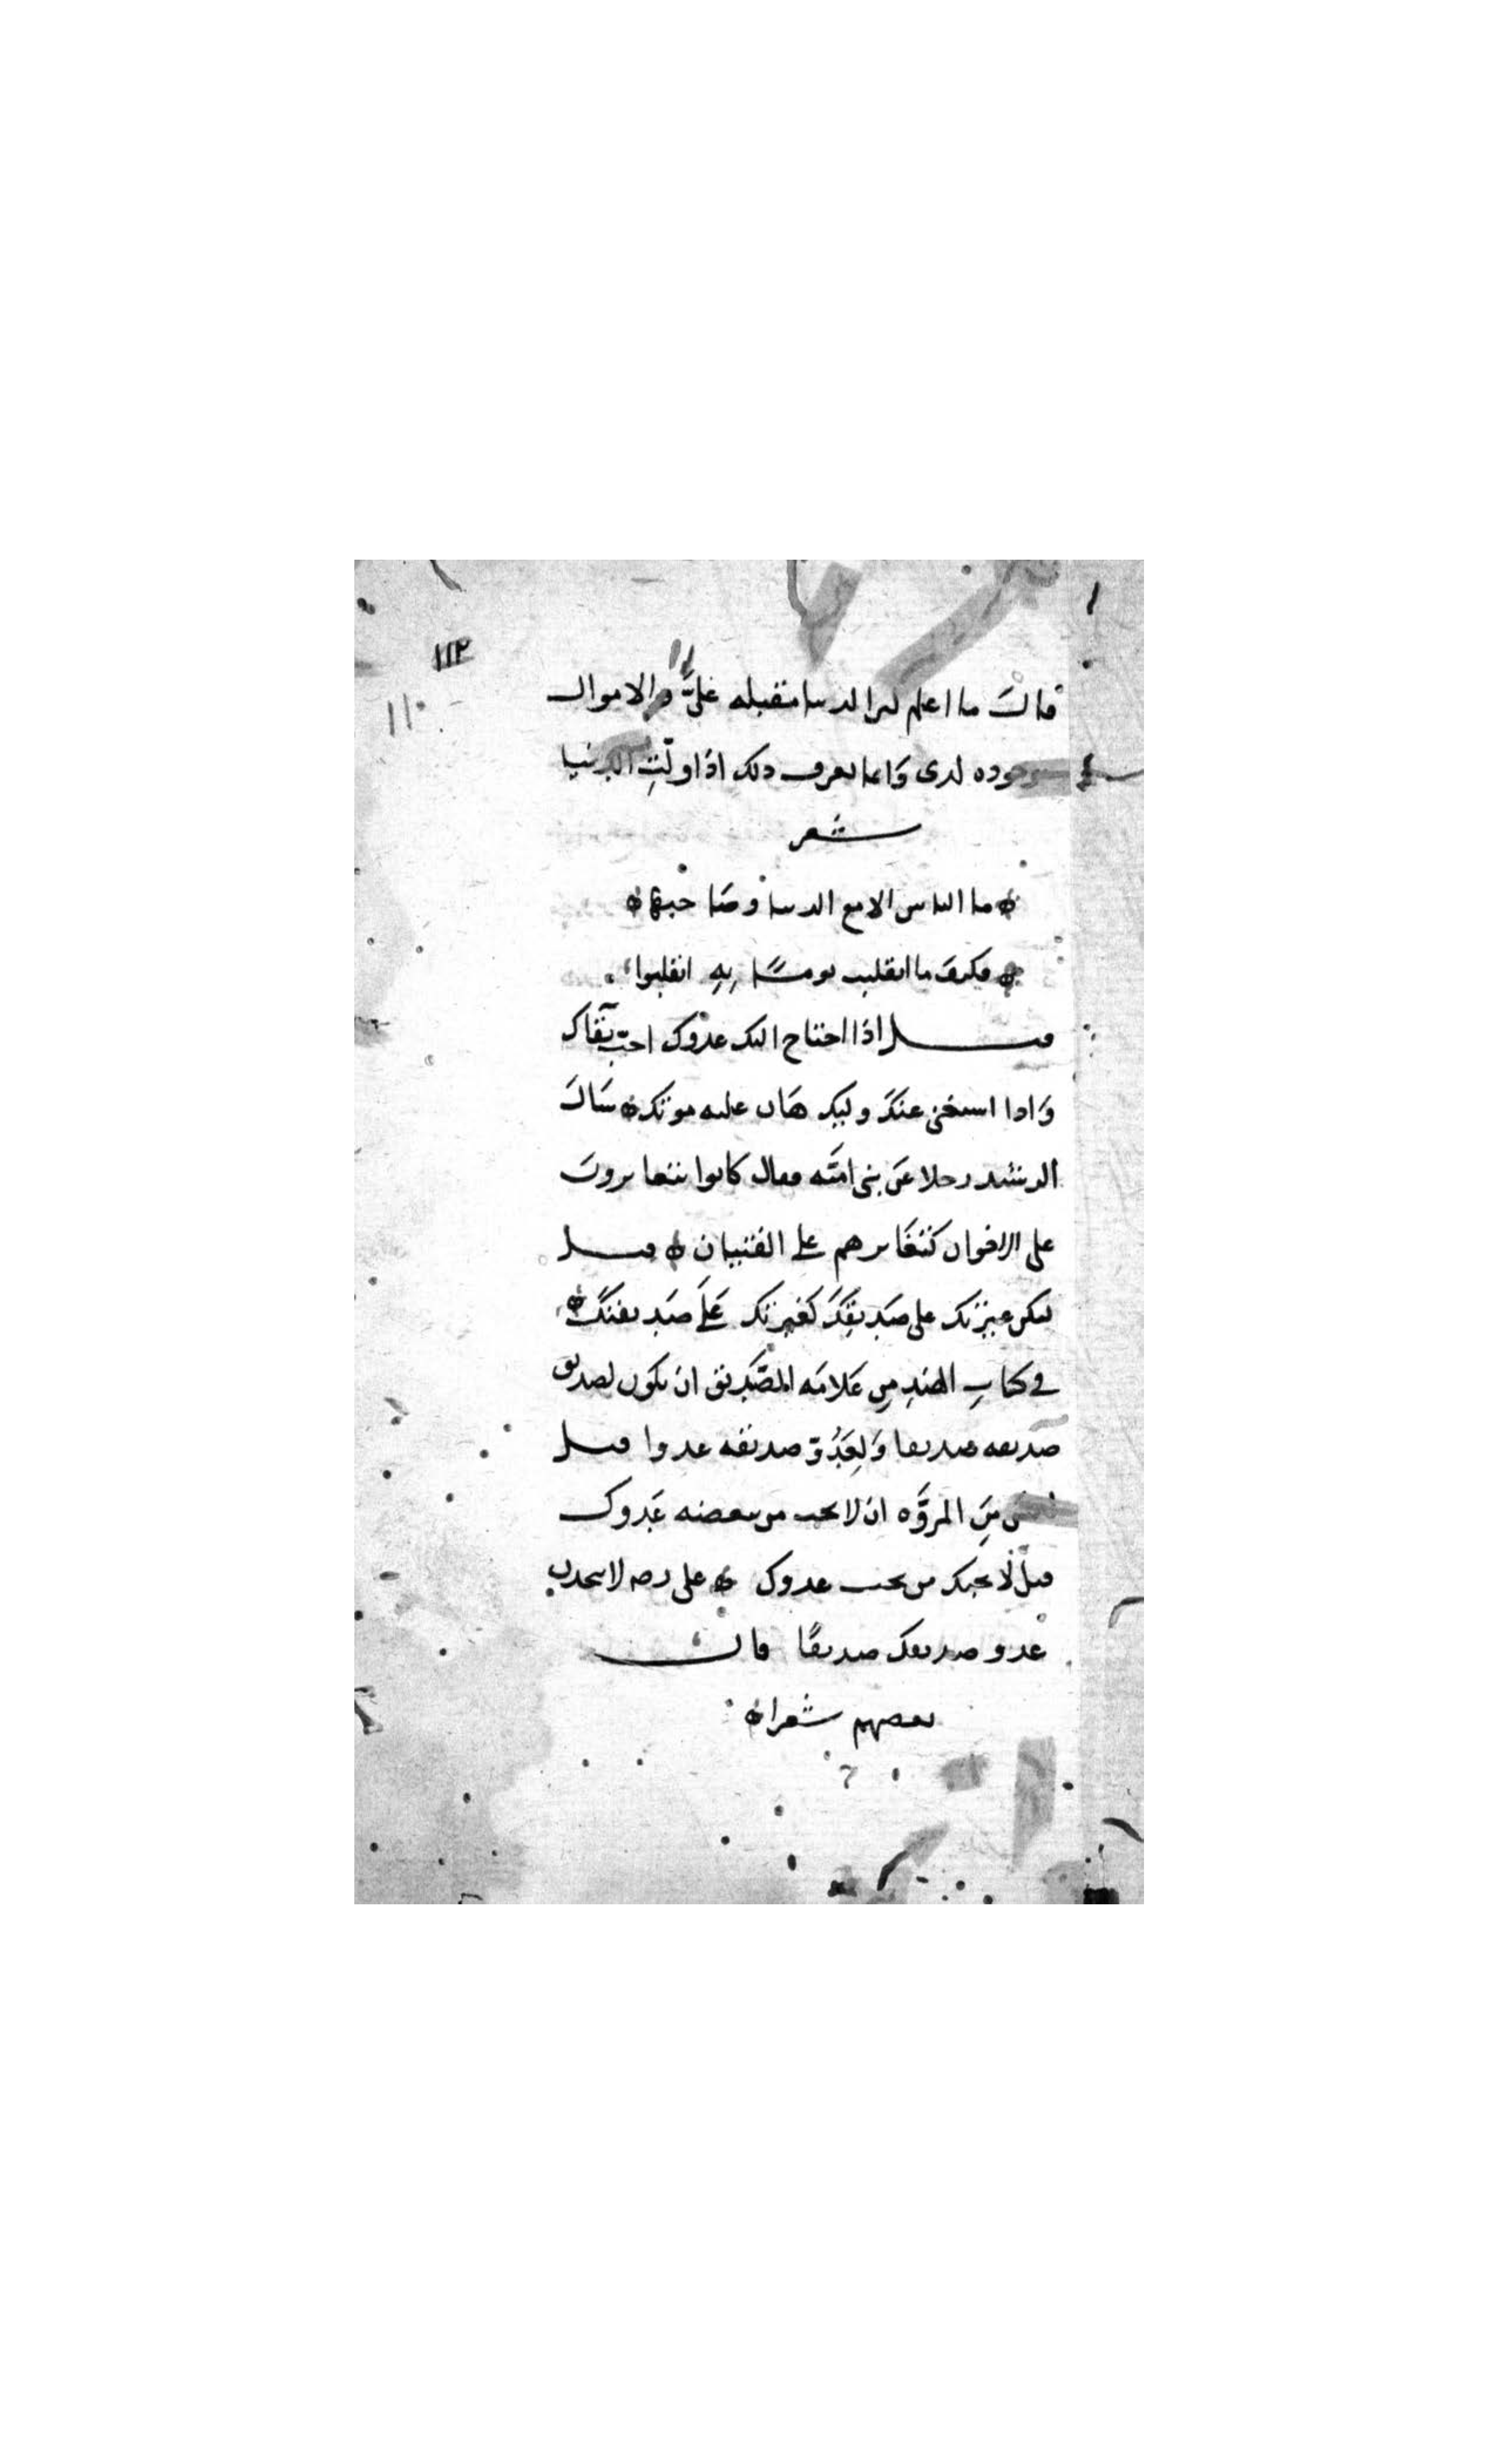 ١١٢
١١٠
قالَ ما اعلم لان الدنيا مقبله عليَّ والاموال
موجوده لدى وَانما يعرف ذلك اذا ولّتِ الدنيا
شعر
ما الناس الا مع الدنيا وصَاحبها
فكيفَ ما انقلبت يومًا بِهِ انقلبوا
قيل اذا احتاج اليك عدوك احبّ بقاك
وَاذا استغنى عنكَ وليك هَان عليه موتك سَالَ
الرشيد رجلا عَن بنى اميَّه فقال كانوا يتغايرونَ
على الاخوان كتغَايرهم على القينان قيل
لتكن غيرتك على صَديقِكَ كغيرتك عَلَى صَديقتكَ
في كتابِ الهندِ مِن عَلامَه الصَّديق ان يكون لصديق
صديقه صديقا وَلِعَدُوّ صديقه عدوا قيل
مِنَ المروَّه ان لا تحب من يبغضه عَدوك
قيل لا يحبك من يحب عدوك على رضه لا تتخذن
عدو صديقك صديقًا قال
بعضهم شعرا